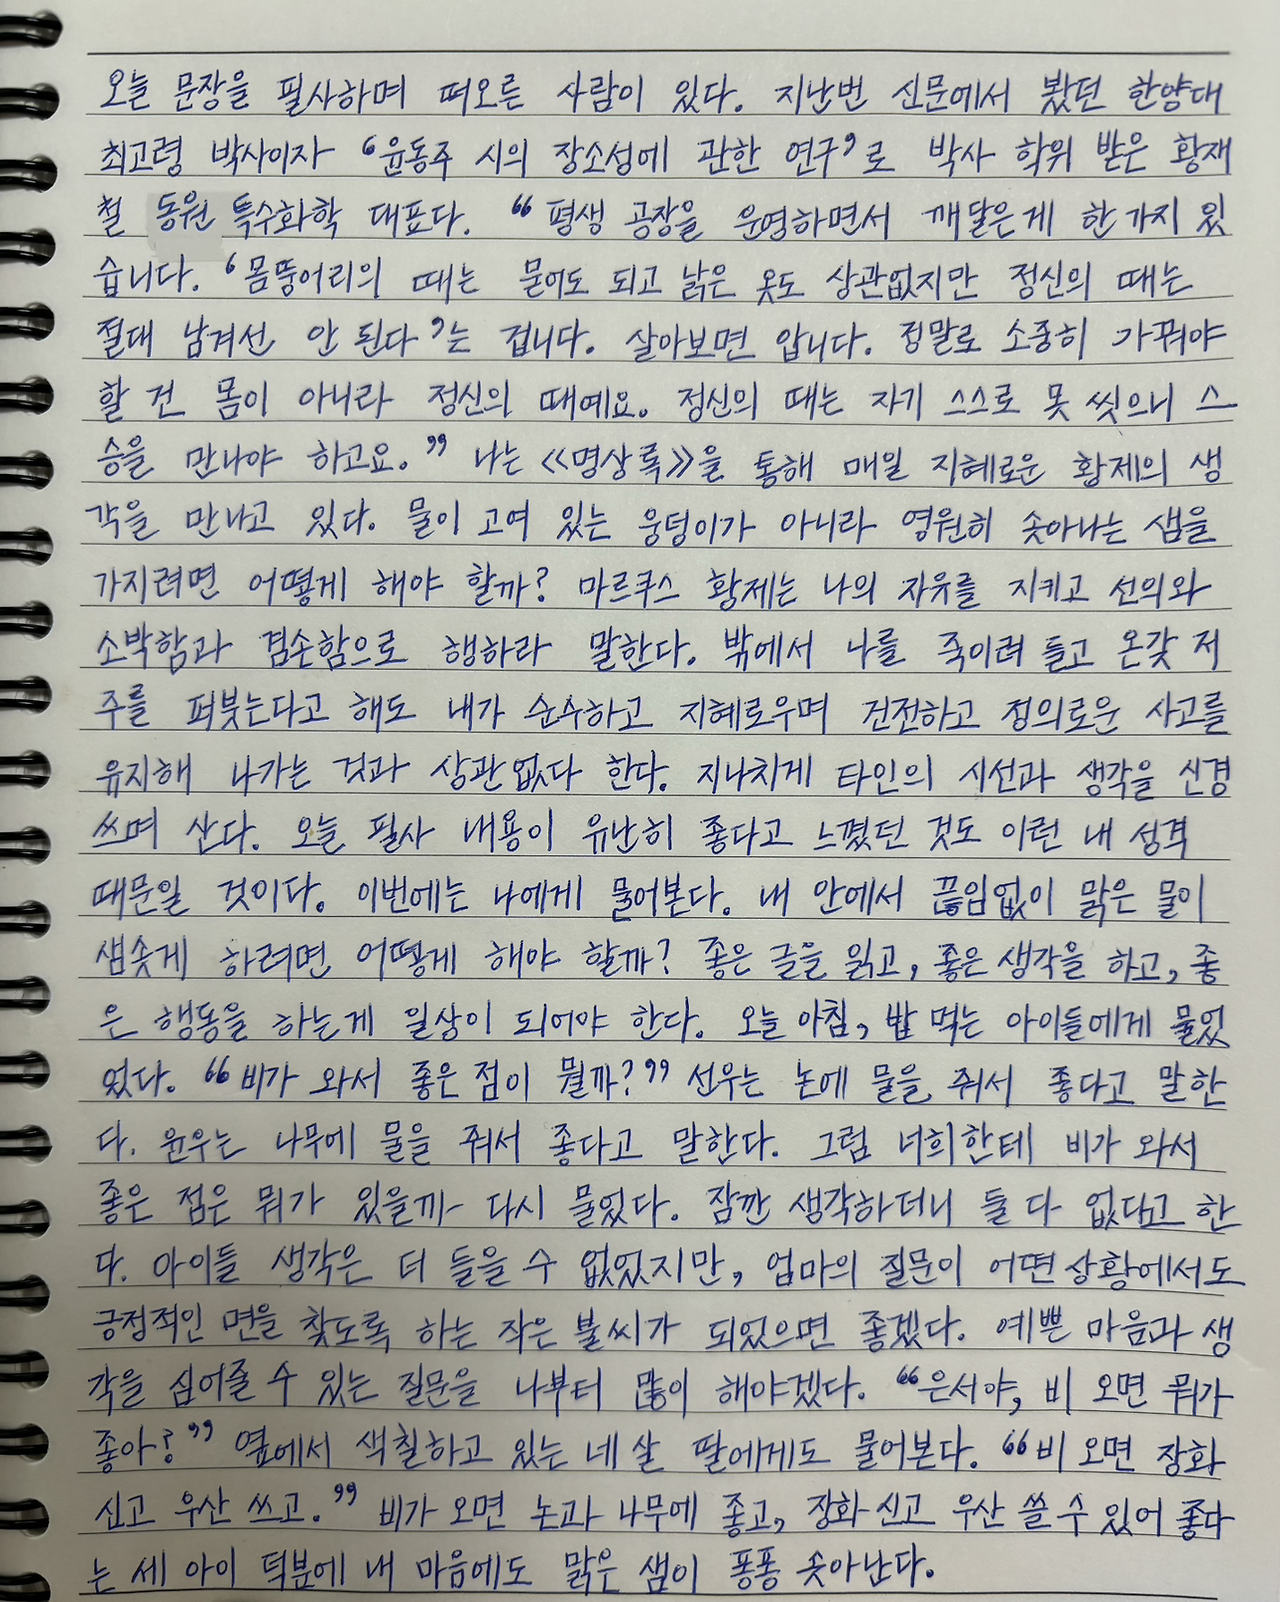 오늘 문장을 필사하며 떠오른 사람이 있다. 지난번 신문에서 봤던 한양대
최고령 박사이자 ‘윤동주 시의 장소성에 관한 연구’로 박사 학위 받은 황재
철 동원 특수화학 대표다. “평생 공장을 운영하면서 깨달은게 한가지 있
습니다. ‘몸뚱어리의 때는 묻어도 되고 낡은 옷도 상관없지만 정신의 때는
절대 남겨선 안 된다’는 겁니다. 살아보면 압니다. 정말로 소중히 가꿔야
할 건 몸이 아니라 정신의 때예요. 정신의 때는 자기 스스로 못 씻으니 스
승을 만나야 하고요.” 나는 《명상록》을 통해 매일 지혜로운 황제의 생
각을 만나고 있다. 물이 고여 있는 웅덩이가 아니라 영원히 솟아나는 샘을
가지려면 어떻게 해야 할까? 마르쿠스 황제는 나의 자유를 지키고 선의와
소박함과 겸손함으로 행하라 말한다. 밖에서 나를 죽이려 들고 온갖 저
주를 퍼붓는다고 해도 내가 순수하고 지혜로우며 건전하고 정의로운 사고를
유지해 나가는 것과 상관없다 한다. 지나치게 타인의 시선과 생각을 신경
쓰며 산다. 오늘 필사 내용이 유난히 좋다고 느꼈던 것도 이런 내 성격
때문일 것이다. 이번에는 나에게 물어본다. 내 안에서 끊임없이 맑은 물이
샘솟게 하려면 어떻게 해야 할까? 좋은 글을 읽고, 좋은 생각을 하고, 좋
은 행동을 하는게 일상이 되어야 한다. 오늘 아침, 밥 먹는 아이들에게 물었
었다. “비가 와서 좋은 점이 뭘까?” 선우는 논에 물을 줘서 좋다고 말한
다. 윤우는 나무에 물을 줘서 좋다고 말한다. 그럼 너희한테 비가 와서
좋은 점은 뭐가 있을까 다시 물었다. 잠깐 생각하더니 둘 다 없다고 한
다. 아이들 생각은 더 들을 수 없었지만, 엄마의 질문이 어떤 상황에서도
긍정적인 면을 찾도록 하는 작은 불씨가 되었으면 좋겠다. 예쁜 마음과 생
각을 심어줄 수 있는 질문을 나부터 많이 해야겠다. “은서야, 비 오면 뭐가
좋아?” 옆에서 색칠하고 있는 네 살 딸에게도 물어본다. “비 오면 장화
신고 우산 쓰고.” 비가 오면 논과 나무에 좋고, 장화 신고 우산 쓸 수 있어 좋다
는 세 아이 덕분에 내 마음에도 맑은 샘이 퐁퐁 솟아난다.